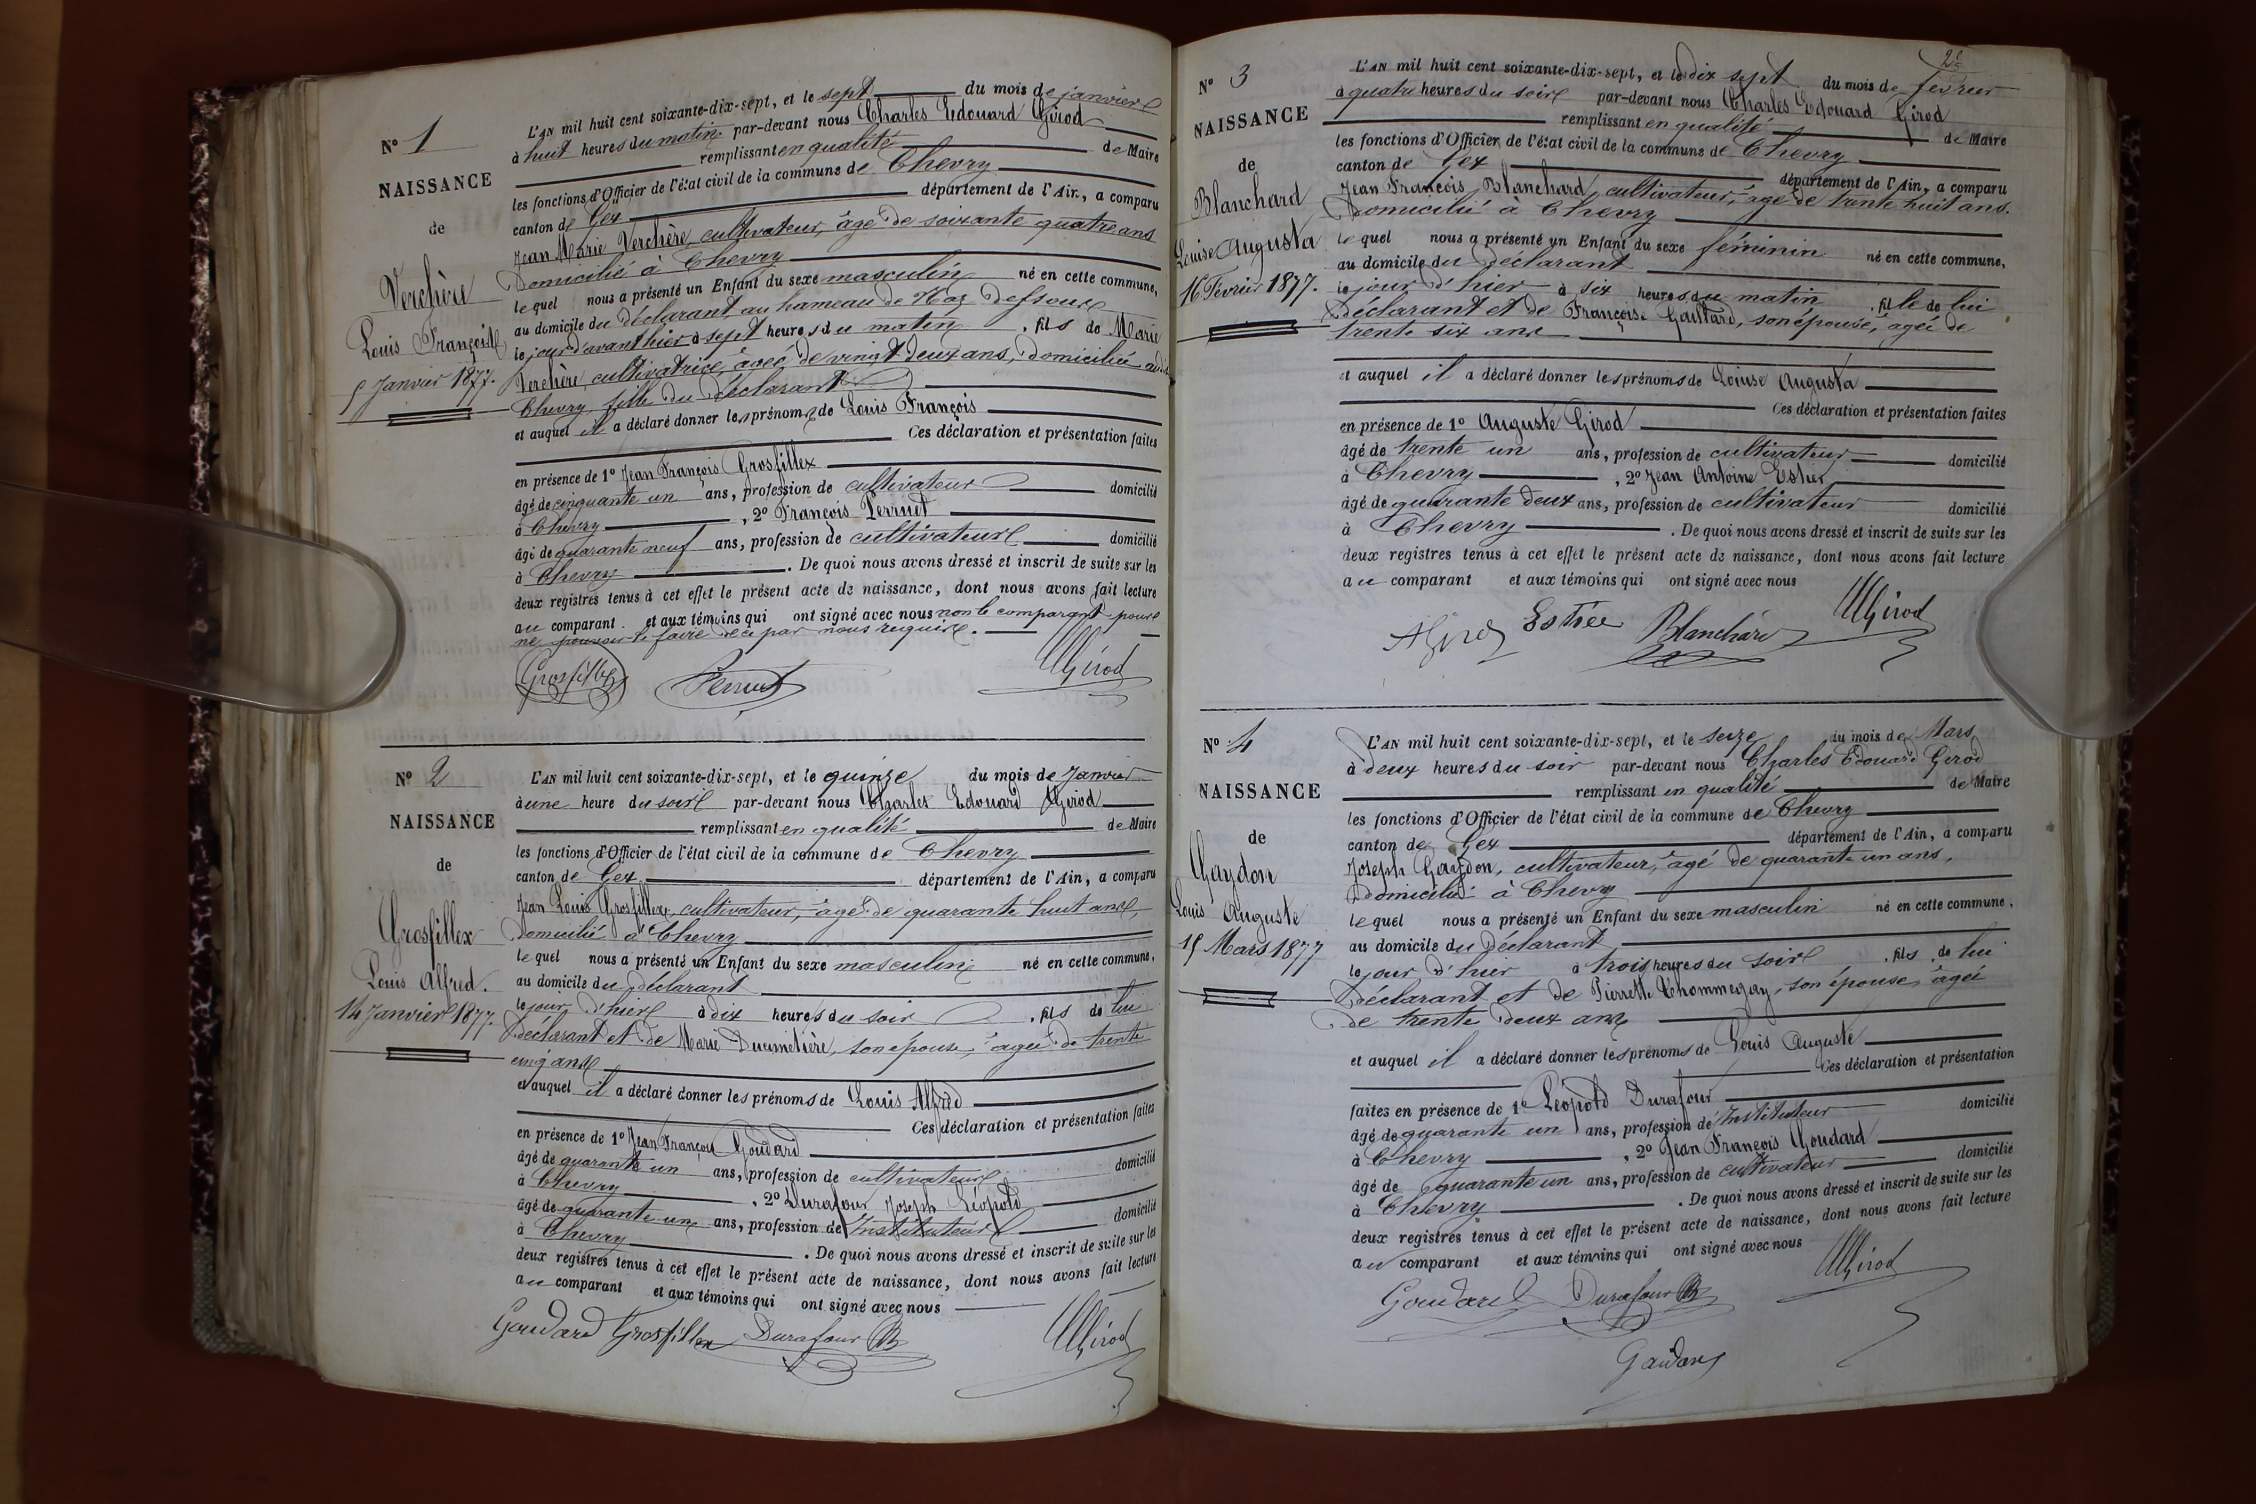 N° 1
NAISSANCE
de
Verchère
Louis François
5 Janvier 1877.
L'AN mil huit cent soixante-dix-sept, et le sept du mois de janvier
à huit heures du matin par-devant nous Charles Edouard Girod
remplissant en qualité de Maire
les fonctions d'Officier de l'état civil de la commune de Chevry
canton de Gex département de l'Ain, a comparu
Jean Marie Verchère, cultivateur, âgé de soixante quatre ans
domicilié à Chevry
le quel nous a présenté un Enfant du sexe masculin né en cette commune,
au domicile du déclarant au hameau de Naz dessous
le jour d'avant hier à sept heures du matin, fils de Marie
Verchère, cultivatrice, âgée de vingt deux ans, domiciliée audit
Chevry, fille du déclarant
et auquel il a déclaré donner les prénoms de Louis François
Ces déclaration et présentation faites
en présence de 1° Jean François Grosfillex
âgé de cinquante un ans, profession de cultivateur domicilié
à Chevry, 2° François Perrut
âgé de quarante neuf ans, profession de cultivateur domicilié
à Chevry. De quoi nous avons dressé et inscrit de suite sur les
deux registres tenus à cet effet le présent acte de naissance, dont nous avons fait lecture
au comparant et aux témoins qui ont signé avec nous non le comparant pour
ne le faire de ce par nous requis.
Grosfillex Perrut Girod
N° 2
NAISSANCE
de
Grosfillex
Louis Alfred.
14 Janvier 1877.
L'AN mil huit cent soixante-dix-sept, et le quinze du mois de Janvier
à une heure du soir par-devant nous Charles Edouard Girod
remplissant en qualité de Maire
les fonctions d'Officier de l'état civil de la commune de Chevry
canton de Gex département de l'Ain, a comparu
Jean Louis Grosfillex, cultivateur, âgé de quarante huit ans,
domicilié à Chevry
le quel nous a présenté un Enfant du sexe masculin né en cette commune,
au domicile du déclarant
le jour d'hier à dix heures du soir, fils de lui
déclarant et de Marie Ducimetière, son épouse, âgée de trente
cinq ans
et auquel il a déclaré donner les prénoms de Louis Alfred
Ces déclaration et présentation faites
en présence de 1° Jean François Goudard
âgé de quarante un ans, profession de cultivateur domicilié
à Chevry, 2° Durafour Joseph Léopold
âgé de quarante un ans, profession de Instituteur domicilié
à Chevry. De quoi nous avons dressé et inscrit de suite sur les
deux registres tenus à cet effet le présent acte de naissance, dont nous avons fait lecture
au comparant et aux témoins qui ont signé avec nous
Goudard Grosfillex Durafour Girod
2e
N° 3
NAISSANCE
de
Blanchard
Louise Augusta
16 Février 1877.
L'AN mil huit cent soixante-dix-sept, et le dix sept du mois de février
à quatre heures du soir par-devant nous Charles Edouard Girod
remplissant en qualité de Maire
les fonctions d'Officier de l'état civil de la commune de Chevry
canton de Gex département de l'Ain, a comparu
Jean François Blanchard, cultivateur, âgé de trente huit ans.
domicilié à Chevry
le quel nous a présenté un Enfant du sexe féminin né en cette commune,
au domicile du déclarant
le jour d'hier à six heures du matin, fille de lui
déclarant et de Françoise Gaillard, son épouse, âgée de
trente six ans
et auquel il a déclaré donner les prénoms de Louise Augusta
Ces déclaration et présentation faites
en présence de 1° Auguste Girod
âgé de trente un ans, profession de cultivateur domicilié
à Chevry, 2° Jean Antoine Estier
âgé de quarante deux ans, profession de cultivateur domicilié
à Chevry. De quoi nous avons dressé et inscrit de suite sur les
deux registres tenus à cet effet le présent acte de naissance, dont nous avons fait lecture
au comparant et aux témoins qui ont signé avec nous
A Girod Estier Blanchard Girod
N° 4
NAISSANCE
de
Gaydon
Louis Auguste
15 Mars 1877
L'AN mil huit cent soixante-dix-sept, et le seize du mois de Mars
à deux heures du soir par-devant nous Charles Edouard Girod
remplissant en qualité de Maire
les fonctions d'Officier de l'état civil de la commune de Chevry
canton de Gex département de l'Ain, a comparu
Joseph Gaydon, cultivateur, âgé de quarante un ans,
domicilié à Chevry
le quel nous a présenté un Enfant du sexe masculin né en cette commune,
au domicile du déclarant
le jour d'hier à trois heures du soir, fils de lui
déclarant et de Pierrette Thommegay, son épouse, âgée
de trente deux ans
et auquel il a déclaré donner les prénoms de Louis Auguste
Ces déclaration et présentation
faites en présence de 1° Léopold Durafour
âgé de quarante un ans, profession de Instituteur domicilié
à Chevry, 2° Jean François Goudard
âgé de quarante un ans, profession de cultivateur domicilié
à Chevry. De quoi nous avons dressé et inscrit de suite sur les
deux registres tenus à cet effet le présent acte de naissance, dont nous avons fait lecture
au comparant et aux témoins qui ont signé avec nous
Goudard Durafour Girod
Gaidon